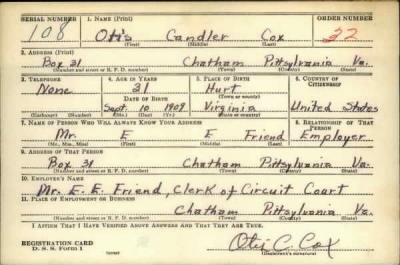 SERIAL NUMBER 1. NAME (Print) ORDER NUMBER
108 Otis Candler Cox 22
(First) (Middle) (Last)
2. ADDRESS (Print)
Box 31 Chatham Pittsylvania Va.
(Number and street or R. F. D. number) (Town) (County) (State)
3. TELEPHONE 4. AGE IN YEARS 5. PLACE OF BIRTH 6. COUNTRY OF CITIZENSHIP
None 31 Hurt
DATE OF BIRTH (Town or county)
Sept. 10 1909 Virginia United States
(Exchange) (No.) (Mo.) (Day) (Yr.) (State or country)
7. NAME OF PERSON WHO WILL ALWAYS KNOW YOUR ADDRESS 8. RELATIONSHIP OF THAT PERSON
Mr. E E Friend Employer
(Mr., Mrs., Miss) (First) (Middle) (Last)
9. ADDRESS OF THAT PERSON
Box 31 Chatham Pittsylvania Va.
(Number and street or R. F. D. number) (Town) (County) (State)
10. EMPLOYER'S NAME
Mr. E. E. Friend, Clerk of Circuit Court
11. PLACE OF EMPLOYMENT OR BUSINESS
Chatham Pittsylvania Va.
(Number and street or R. F. D. number) (Town) (County) (State)
I AFFIRM THAT I HAVE VERIFIED ABOVE ANSWERS AND THAT THEY ARE TRUE.
REGISTRATION CARD
D. S. S. Form 1 Otis C. Cox
(Registrant's signature)